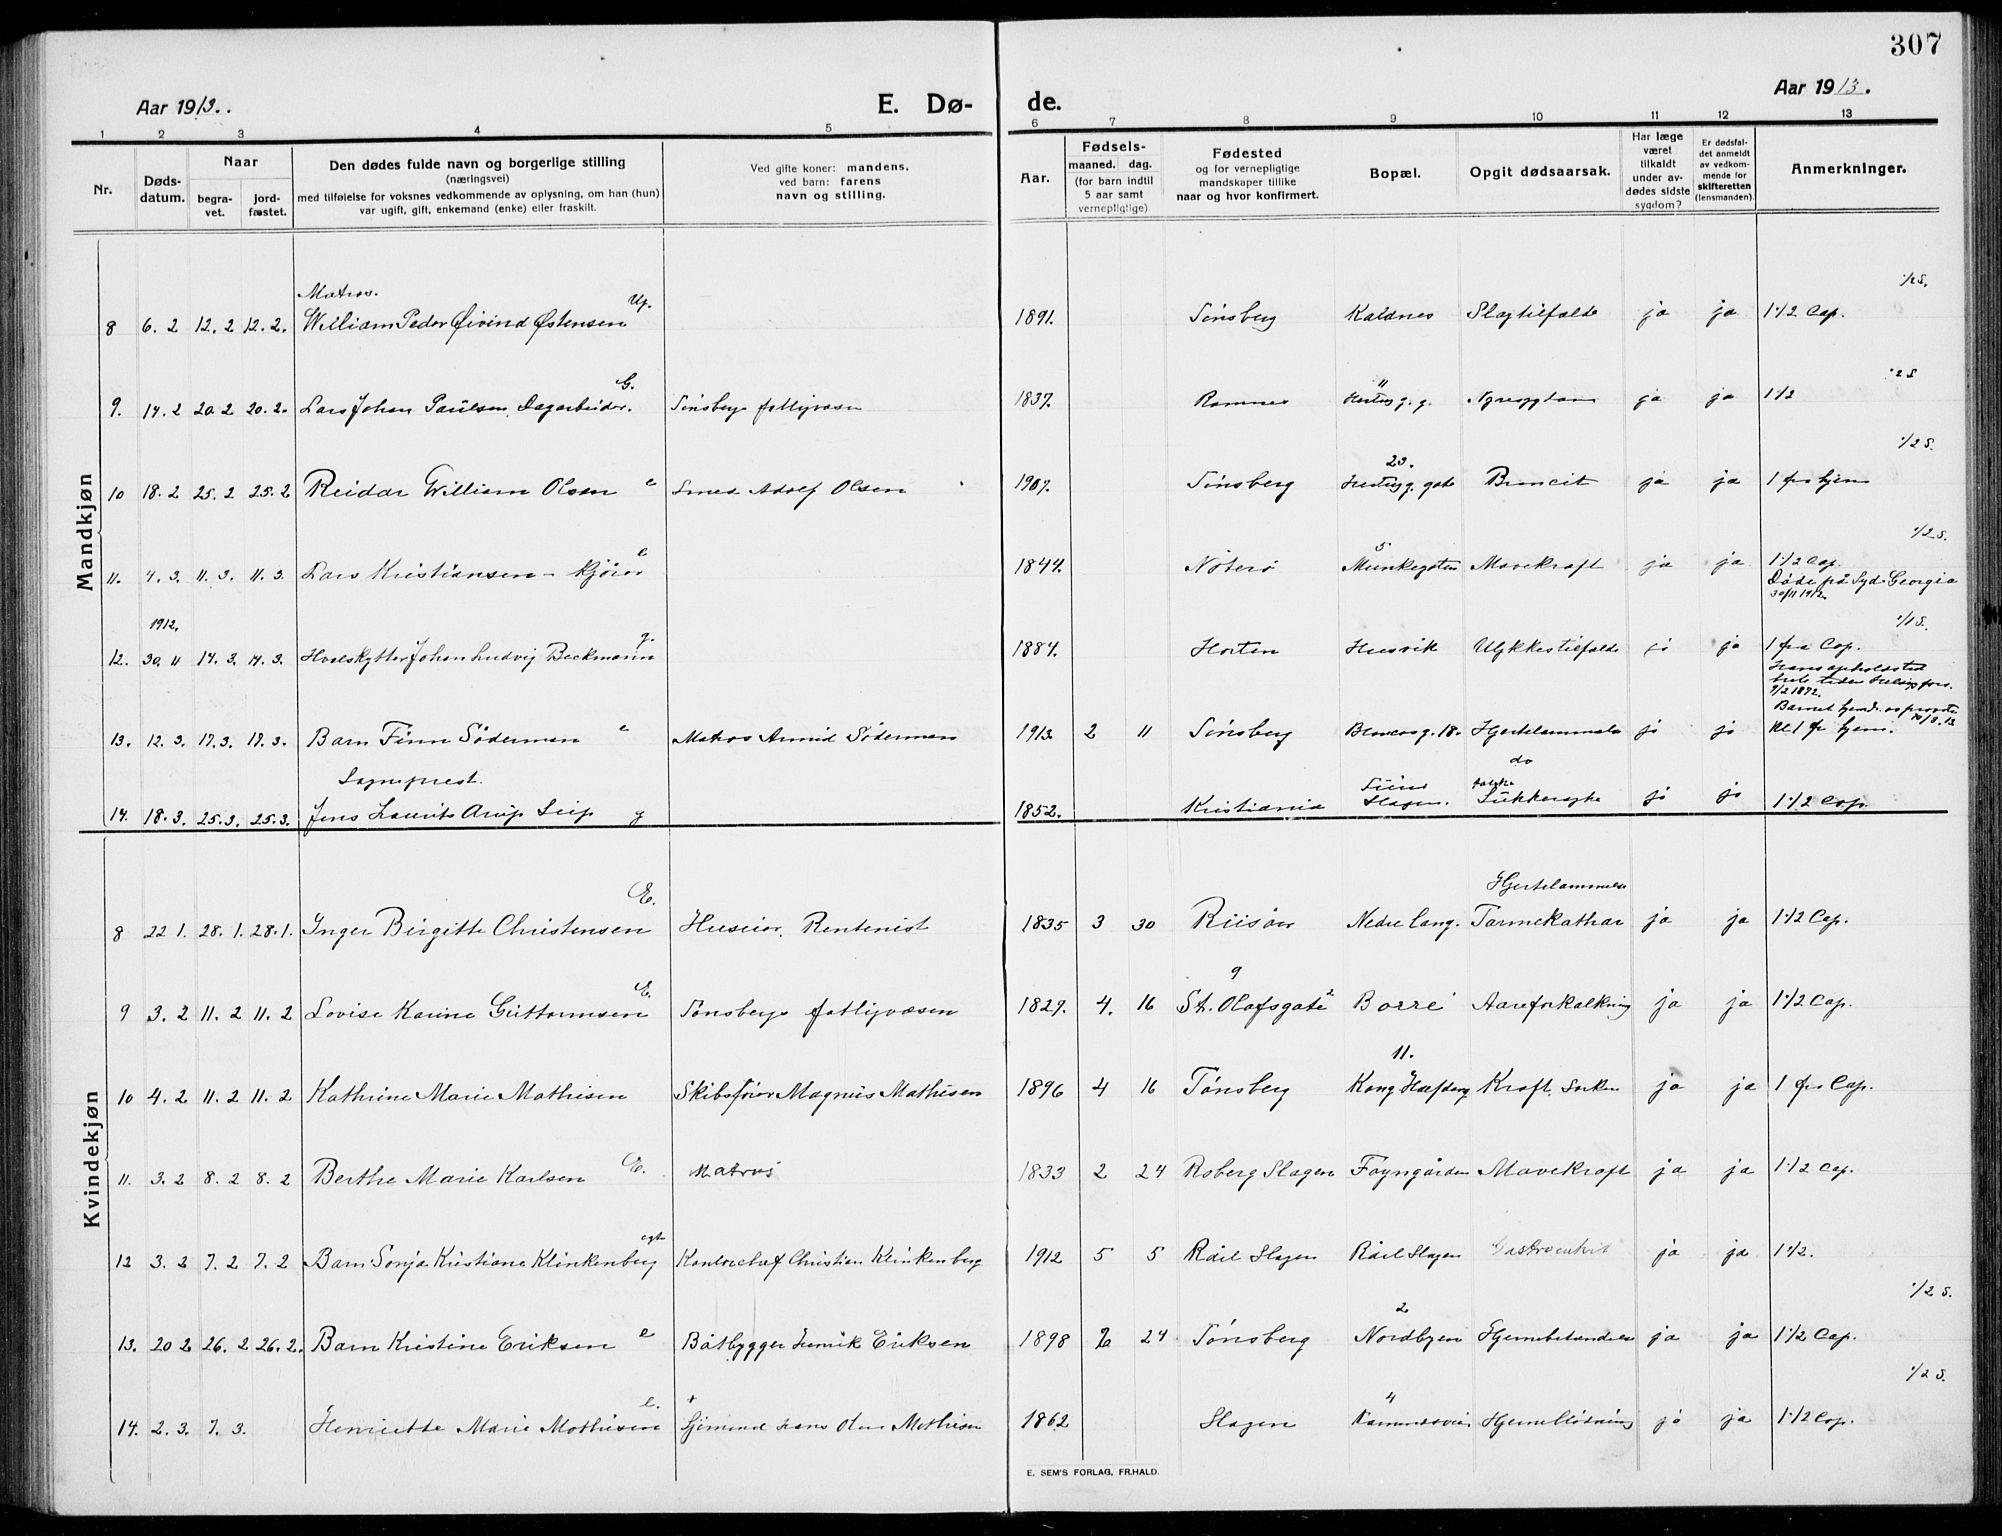 307
Aar 1913.
E. Dø-
de.
Aar 1913.
1 2 3 4 5 6 7 8 9 10 11 12 13
Nr.
Døds-
datum.
Naar
begra-
vet.
jord-
fæstet.
Den dødes fulde navn og borgerlige stilling
(næringsvei)
med tilføielse for voksnes vedkommende av oplysning, om han (hun)
var ugift, gift, enkemand (enke) eller fraskilt.
Ved gifte koner: mandens,
ved barn: farens
navn og stilling.
Aar.
Fødsels-
maaned. dag.
(for barn indtil
5 aar samt
vernepligtige)
Fødested
og for vernepligtige
mandskaper tillike
naar og hvor konfirmert.
Bopæl.
Opgit dødsaarsak.
Har læge
været
tilkaldt
under av-
dødes sidste
sygdom?
Er dødsfal-
det anmeldt
av vedkom-
mende for
skifteretten
(lensmanden).
Anmerkninger.
Mandkjøn
Matros. Ug. 1/2 S.
8 6. 2 12. 2 12. 2. William Peder Øivind Østensen 1891. Tønsberg Kaldnes Slagtilfælde ja ja 1 1/2 Cap.
G.
9. 14. 2 20. 2 20. 2. Lars Johan Paulsen, Dagarbeider. Tønsbergs fattigvæsen 1837. Ramnes ja ja 1 1/2
1/2 S.
23.
10 18. 2 25. 2 25. 2 Reidar William Olsen e Smed Adolf Olsen 1907. Tønsberg ja ja 1 fra hjem
1/2 S.
e 5
11. 4. 3. 11. 3. 11. 3. Lars Kristiansen - kjører 1844. Nøterø Munkegaten Mavekræft ja ja 1 1/2 Cap.
Døde på Syd-Georgia
30/11 1912.
1912. g. 1/1 S.
12. 30. 11 14. 3. 14. 3. Hvalskytter Johan Ludvig Beckmann 1884. Horten Husvik Ulykkestilfælde ja ja 1 fra Cap.
13. 12. 3. 17. 3. 17. 3. Barn Finn Söderman e Matros Söderman 1913. 2 11 Tønsberg Hjertelammelse ja ja
Sogneprest. do
14. 18. 3. 25. 3. 25. 3. Jens Laurits Arup Seip g 1852. Kristiania Slagen. Sukkersyke ja ja 1 1/2 Cap.
Kvindekjøn
E. Hjertelammelse
8 22 1. 28. 1. 28. 1. Inger Birgitte Christensen Huseier, Rentenist 1835 3 30 Riisøer Nedre Lang. Tarmekathar ja ja 1 1/2 Cap.
E. 9
9 3. 2 11. 2 11. 2 Lovise Karine Guttormsen Tønsbergs fattigvæsen 1827. 4. 16 St. Olafsgate Borre Aareforkalkning ja ja 1 1/2 Cap.
11.
10 4. 2 11. 2 11. 2 Kathrine Marie Mathisen Skibsfører Magnus Mathisen 1896 4 16 Tønsberg Kræft ja ja 1 fra Cap.
E.
11. 3. 2 8. 2 8. 2 Berthe Marie Karlsen Matros 1833 2 24 Roberg Slagen Foyngården Mavekræft ja ja 1 1/2 Cap.
egt.
12 3. 2 7. 2 7. 2 Barn Sonja Kristiane Klinkenberg Kontorchef Christian Klinkenberg 1912 5 5 Råel Slagen Råel Slagen Gastroenterit ja ja 1 1/2.
1/2 S.
2
13. 20 2 26. 2 26. 2. Barn Kristine Eriksen e Båtbygger Henrik Eriksen 1898 24 Tønsberg Nordbyen ja ja 1 1/2 Cap.
1/2 S.
e. + 4
14. 2. 3. 7. 3. Henriette Marie Mathisen Hans Olaus Mathisen 1862 Slagen Hjerneblødning ja ja 1 1/2 Cap.
E. SEM'S FORLAG, FR.HALD.